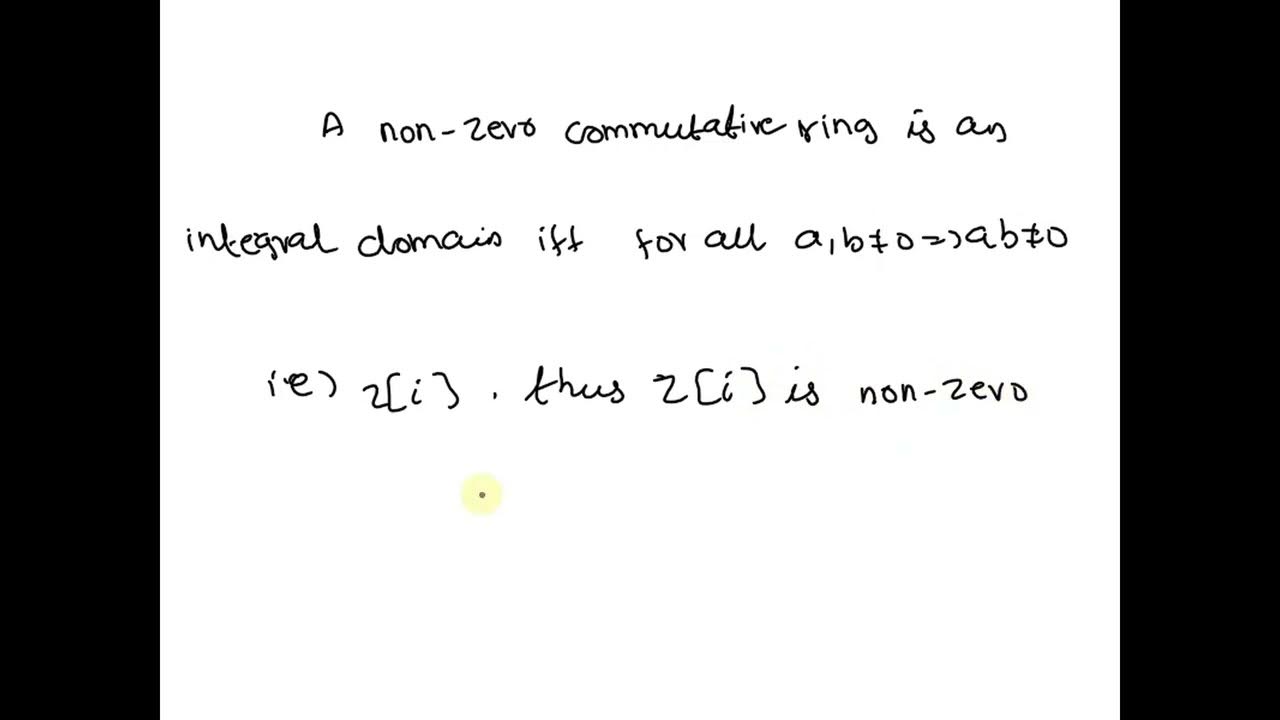 A non-zero commutative ring is an
integral domain iff for all a,b≠0=>ab≠0
ie) Z[i]. thus Z[i] is non-zero